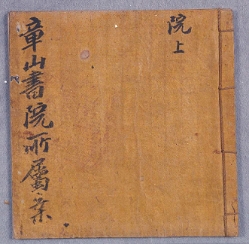 章山書院所屬案
院上